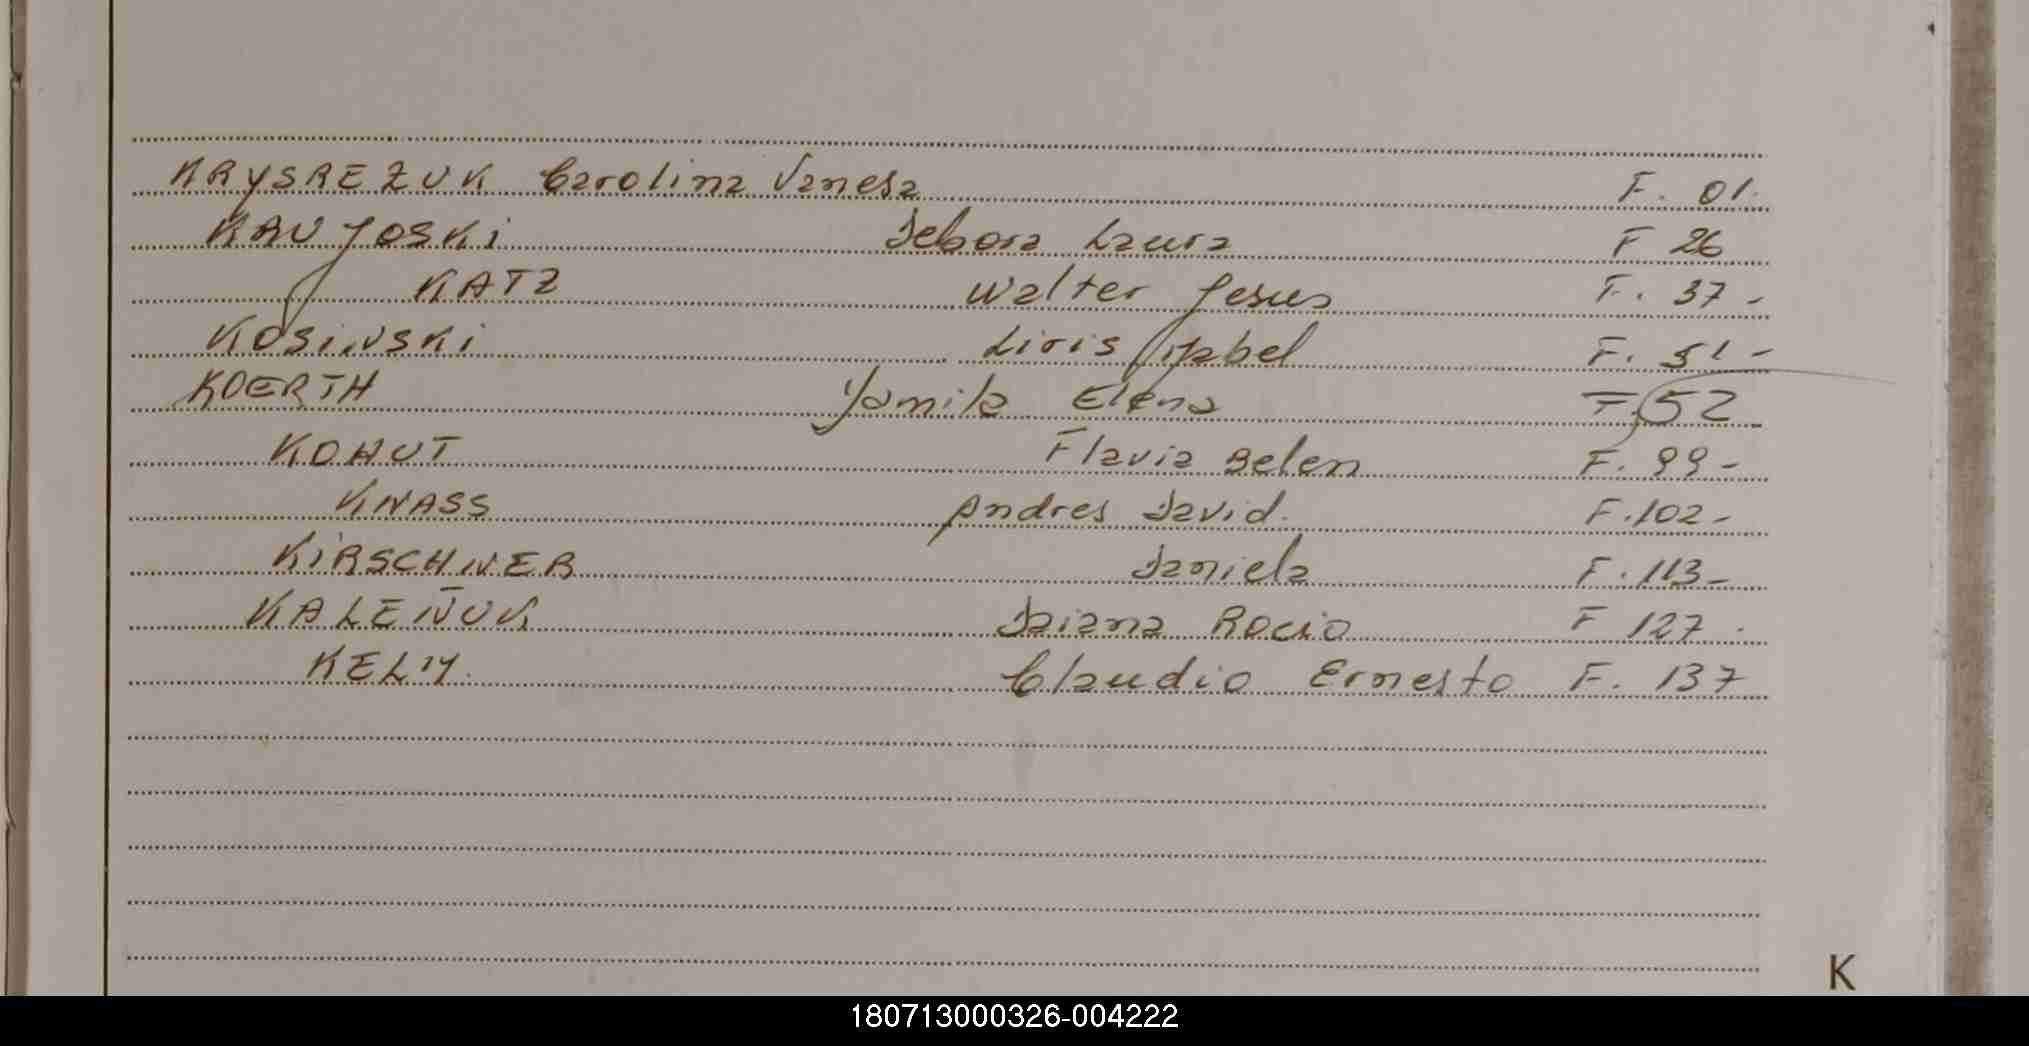 KRYSREZUK Carolina Vanesa F. 01.
KAUJOSKi Debora Laura F 26
KATZ Walter Jesus F. 37 -
KOSiNSKi Liris Mabel F. 51 -
KOERTH Yamila Elena F. 52
KOHUT Flavia Belen F. 99 -
KNASS Andres David. F. 102 -
KiRSCHNER Daniela F. 113 -
KALEÑUK Daiana Rocio F 127 .
KELM. Claudio Ernesto F. 137
K
180713000326-004222